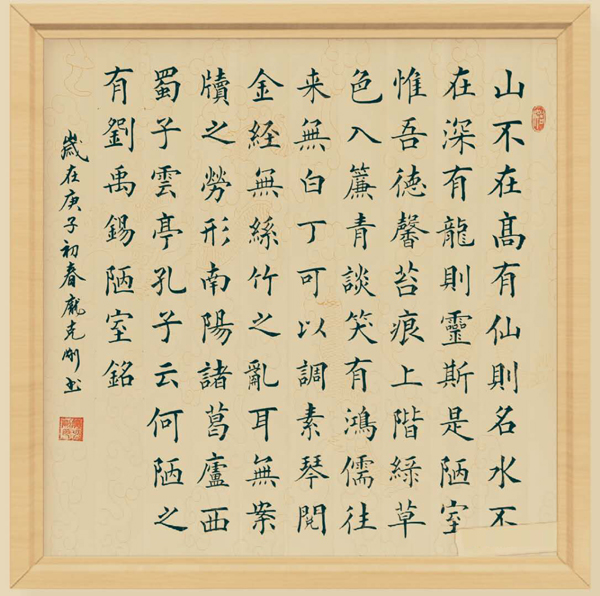 山不在髙有仙則名水不
在深有龍則靈斯是陋室
惟吾徳馨苔痕上階緑草
色入簾青談笑有鴻儒往
来無白丁可以調素琴閲
金経無絲竹之亂耳無案
牘之勞形南陽諸葛廬西
蜀子雲亭孔子云何陋之
有劉禹錫陋室銘
歲在庚子初春龐克刚书